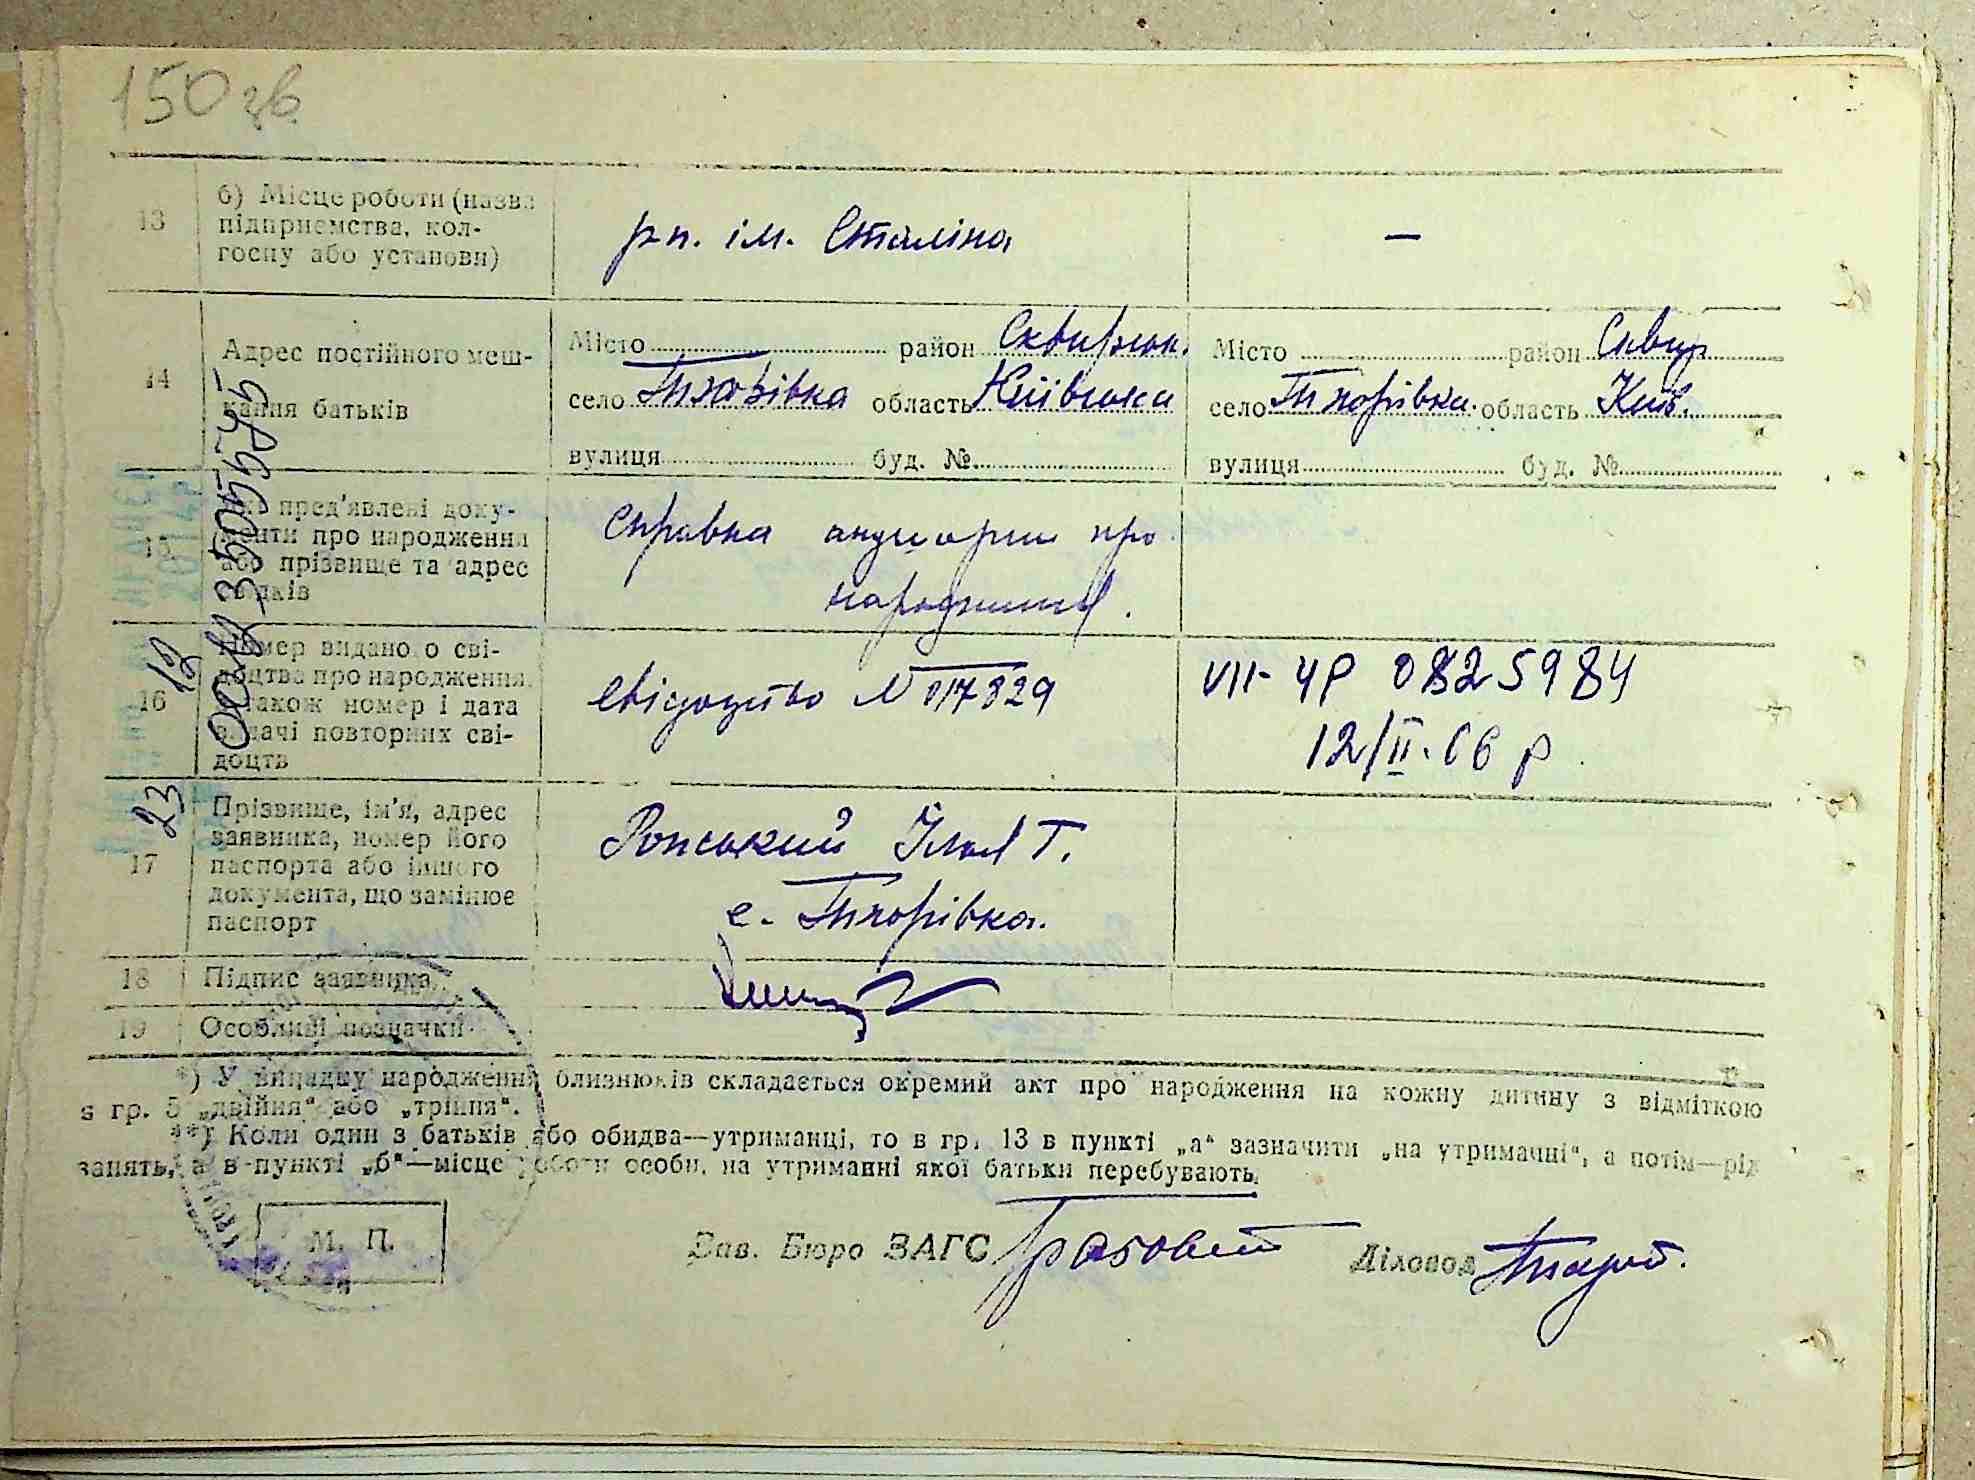 150 зв
13
б) Місце роботи (назва
підприємства, кол-
госпу або установи)
рп. ім. Сталіна
—
14
Адрес постійного меш-
кання батьків
Місто район Сквирськ.
село Тхорівка область Київська
вулиця буд. №
Місто район Сквир
село Тхорівка область Київ.
вулиця буд. №
15
пред'явлені доку-
менти про народження
або прізвище та адрес
свідків
Справка акушерки про
народження.
16
Номер виданого сві-
доцтва про народження,
також номер і дата
видачі повторних сві-
доцтв
свідоцтво № 017829
VII-ЧР 0825984
12/II.66 р
17
Прізвище, ім'я, адрес
заявника, номер його
паспорта або іншого
документа, що замінює
паспорт
Ілля Т.
с. Тхорівка.
18
Підпис заявника
19
Особливі позначки
00123505575
12
23
*) У випадку народження близнюків складається окремий акт про народження на кожну дитину з відміткою
в гр. 5 „двійня“ або „трійня“.
**) Коли один з батьків або обидва—утриманці, то в гр. 13 в пункті „а“ зазначити „на утриманні“, а потім—рід
занять, а в пункті „б“—місце роботи особи, на утриманні якої батьки перебувають.
М. П.
Зав. Бюро ЗАГС
Діловод